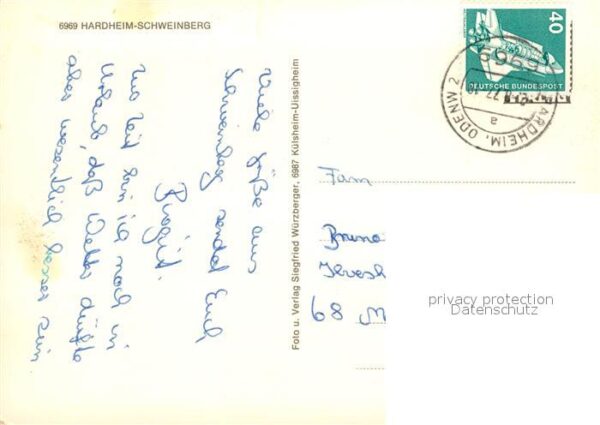 6969 HARDHEIM-SCHWEINBERG
Viele Grüße aus
Schweinberg sendet Euch
Birgit.
Zur Zeit bin ich noch in
Urlaub, daß Wetter dürfte
aber wesentlich besser sein.
Foto u. Verlag Siegfried Würzberger, 6987 Külsheim-Uissigheim
40
DEUTSCHE BUNDESPOST
6969
HARDHEIM, ODENW 2
a
Fam
Bruno
68 M
privacy protection
Datenschutz